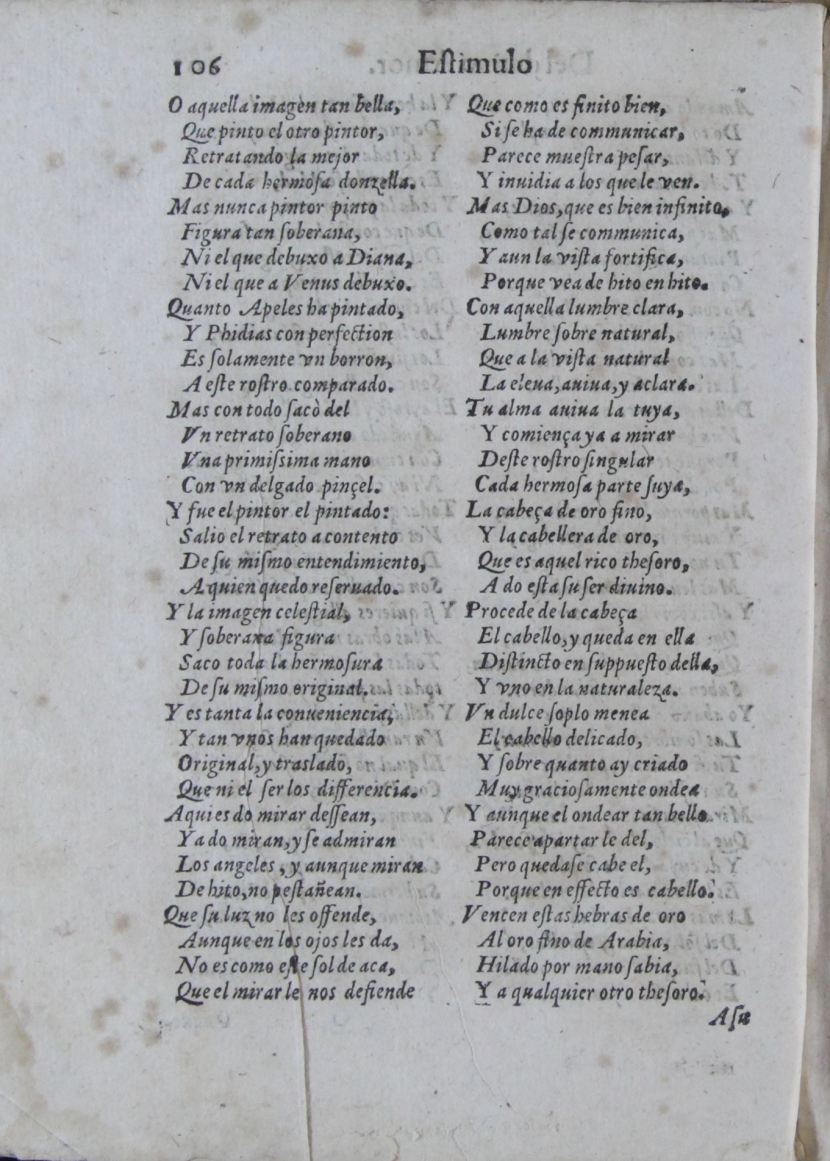 106 Estimulo
O aquella imagen tan bella,
Que pinto el otro pintor,
Retratando la mejor
De cada hermosa donzella.
Mas nunca pintor pinto
Figura tan soberana,
Ni el que debuxo a Diana,
Ni el que a Venus debuxo.
Quanto Apeles ha pintado,
Y Phidias con perfection
Es solamente vn borron,
A este rostro comparado.
Mas con todo sacò del
Vn retrato soberano
Vna primissima mano
Con vn delgado pinçel.
Y fue el pintor el pintado:
Salio el retrato a contento
De su mismo entendimiento,
A quien quedo reseruado.
Y la imagen celestial,
Y soberana figura
Saco toda la hermosura
De su mismo original.
Y es tanta la conueniencia,
Y tan vnos han quedado
Original, y traslado,
Que ni el ser los differencia.
Aqui es do mirar dessean,
Y a do miran, y se admiran
Los angeles, y aunque miran
De hito, no pestañean.
Que su luz no les offende,
Aunque en los ojos les da,
No es como este sol de aca,
Que el mirarle nos defiende
Que como es finito bien,
Si se ha de communicar,
Parece muestra pesar,
Y inuidia a los que le ven.
Mas Dios, que es bien infinito,
Como tal se communica,
Y aun la vista fortifica,
Porque vea de hito en hito.
Con aquella lumbre clara,
Lumbre sobre natural,
Que a la vista natural
La eleua, auiua, y aclara.
Tu alma auiua la tuya,
Y comiença ya a mirar
Deste rostro singular
Cada hermosa parte suya,
La cabeça de oro fino,
Y la cabellera de oro,
Que es aquel rico thesoro,
A do esta su ser diuino.
Procede de la cabeça
El cabello, y queda en ella
Distincto en suppuesto della,
Y vno en la naturaleza.
Vn dulce soplo menea
El cabello delicado,
Y sobre quanto ay criado
Muy graciosamente ondea
Y aunque el ondear tan bello
Parece apartar le del,
Pero quedase cabe el,
Porque en effecto es cabello.
Vencen estas hebras de oro
Al oro fino de Arabia,
Hilado por mano sabia,
Y a qualquier otro thesoro.
A su